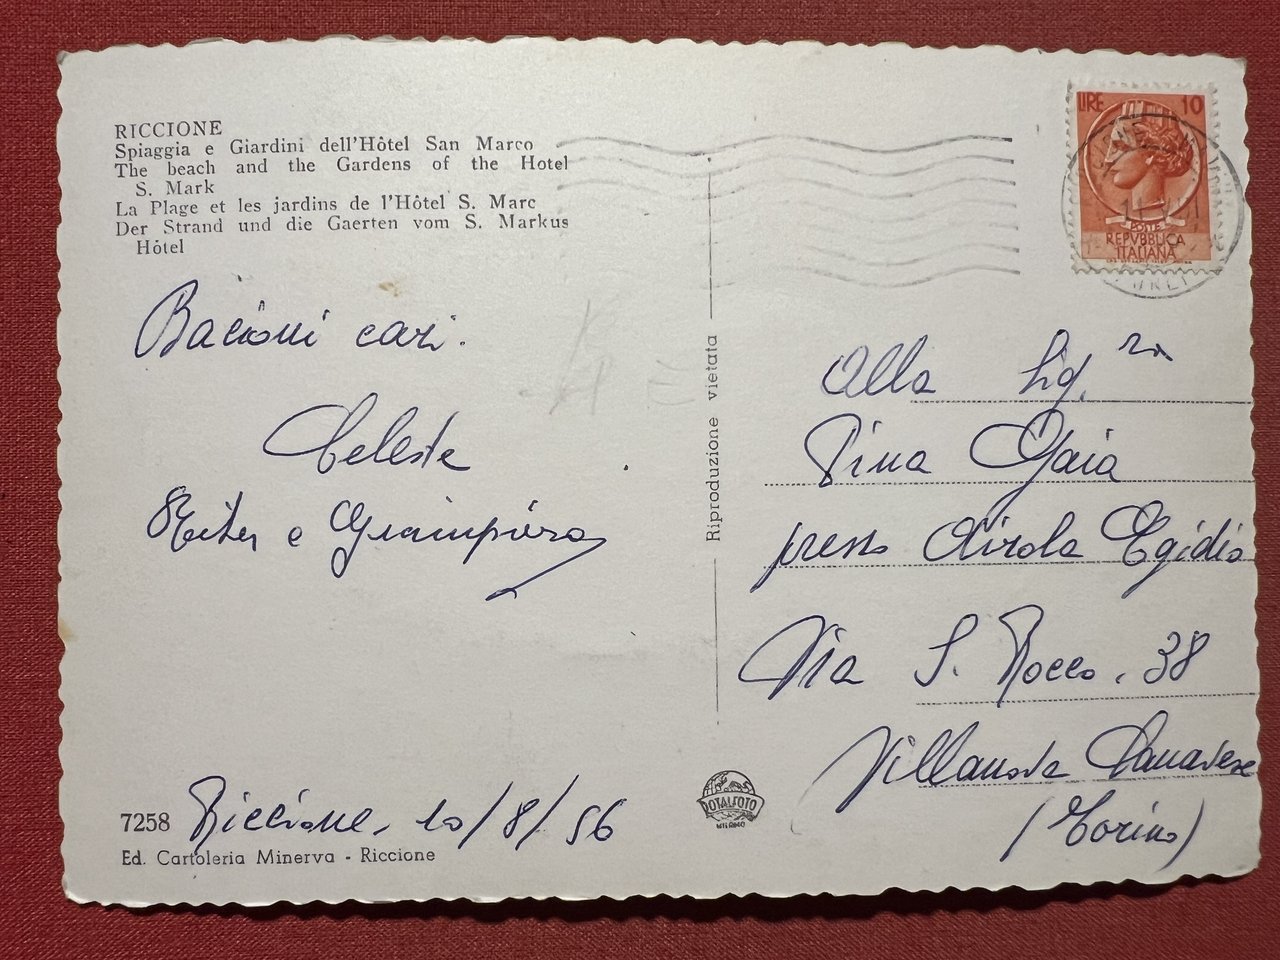 RICCIONE
Spiaggia e Giardini dell'Hôtel San Marco
The beach and the Gardens of the Hotel
S. Mark
La Plage et les jardins de l'Hôtel S. Marc
Der Strand und die Gaerten vom S. Markus
Hôtel
Bacioni cari.
Celeste
e Giampiero
7258 Riccione, 10/8/56
Ed. Cartoleria Minerva - Riccione
Riproduzione vietata
ROTALFOTO
MILANO
LIRE 10
POSTE
REPVBBLICA
ITALIANA
Alla Sig.ra
Pina Gaia
presso Airola Egidio
Via S. Rocco. 38
Villanova Canavese
(Torino)